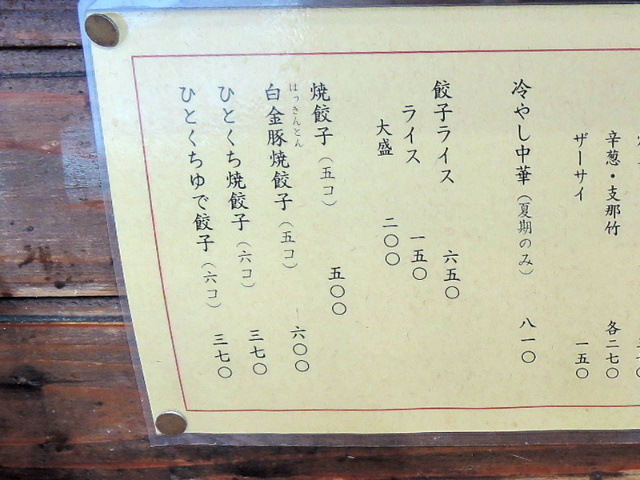 辛葱・支那竹 各二七〇
ザーサイ 一五〇
冷やし中華（夏期のみ） 八一〇
餃子ライス 六五〇
ライス 一五〇
大盛 二〇〇
焼餃子（五コ） 五〇〇
はっきんとん
白金豚焼餃子（五コ） 六〇〇
ひとくち焼餃子（六コ） 三七〇
ひとくちゆで餃子（六コ） 三七〇